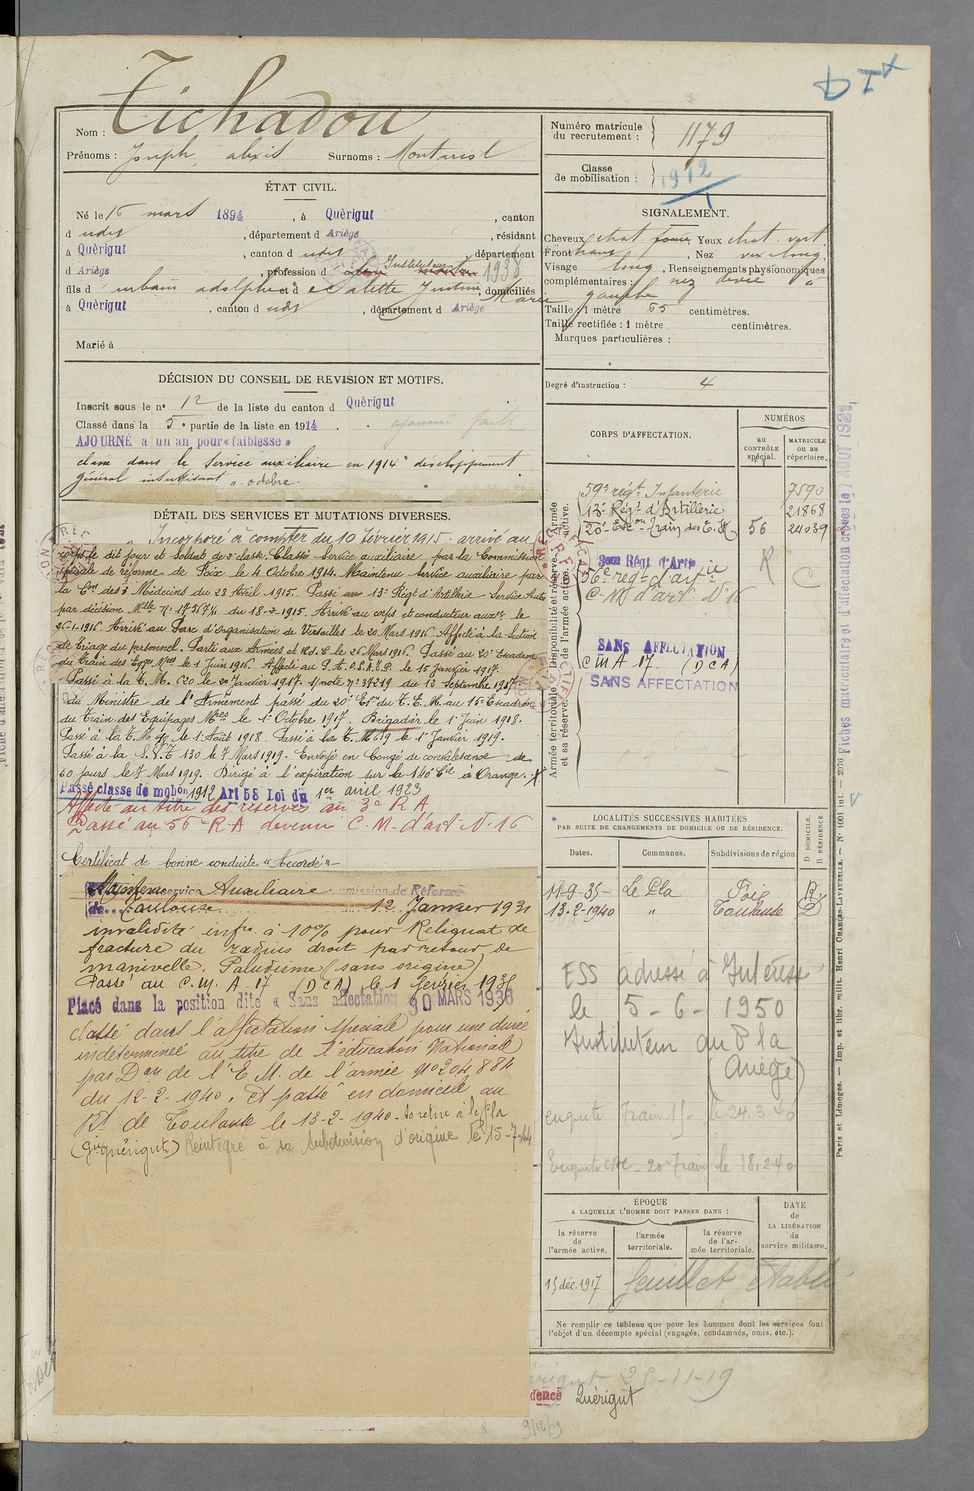 Nom : Tichadou
Prénoms : Joseph, alexis Surnoms :
ÉTAT CIVIL.
Né le 16 mars 1894, à Quérigut, canton
d udit, département d Ariège, résidant
à Quérigut, canton d udit, département
d Ariège, profession d Instituteur 1938
fils d' urbain adolphe et d Justine Marie, domiciliés
à Quérigut, canton d udit, département d Ariège
Marié à
DÉCISION DU CONSEIL DE REVISION ET MOTIFS.
Inscrit sous le n° 12 de la liste du canton d Quérigut
Classé dans la 5e partie de la liste en 1914.
AJOURNÉ à un an pour « faiblesse »
classé dans le service auxiliaire en 1914 " développement
général insuffisant ". octobre.
DÉTAIL DES SERVICES ET MUTATIONS DIVERSES.
Incorporé à compter du 10 février 1915. arrivé au
corps le dit jour et Soldat de 2e classe. Classé service auxiliaire par la Commission
spéciale de réforme de Foix le 4 Octobre 1914. Maintenu service auxiliaire par
la Con des 3 Médecins du 28 Avril 1915. Passé au 13e Régt d'Artillerie Service Auto
par décision Mlle du 18-2-1915. Arrivé au corps et conducteur auxre le
26-1-1916. Arrivé au Parc d'Organisation de Versailles le 20 Mars 1916. Affecté à la Section
de Triage du personnel. Parti aux Armées le 26 Mars 1916. Passé au 20e Escadron
du Train des Eqges Mres le 1 Juin 1916. Affecté au le 15 Janvier 1917.
Passé à la T.M. 620 le 20 Janvier 1917. note n° 37219 du 12 Septembre 1917
du Ministre de l'Armement passé du 20e Eon du T.E.M. au 15e Escadron
du Train des Equipages Mres le 1 Octobre 1917. Brigadier le 1 Juin 1918.
Passé à la T.M. le 1 Août 1918. Passé à la T.M. 619 le 1 Janvier 1919.
Passé à la 130 le 7 Mars 1919. Envoyé en Congé de convalescence de
60 jours le 7 Mars 1919. Dirigé à l'expiration sur la 140 Cie à Orange.
Passé classe de mobon 1912 Art 58 Loi du 1er avril 1923
Affecté au titre des réserves au 3e R A
Passé au 56e R A devenu C. M. d'art N° 16
Certificat de bonne conduite « Accordé »
Maintenu service Auxiliaire Commission de Réforme
de Toulouse 12 Janvier 1931
invalidité infre à 10% pour Reliquat de
fracture du radius droit par retour de
manivelle. Paludisme (sans origine)
Passé au C. M. A 17 (DCA) le 1 février 1936
Placé dans la position dite « Sans affectation 30 MARS 1936
classé dans l'affectation spéciale pour une durée
indéterminée au titre de l'éducation Nationale
par Don de l'E. M. de l'armée N° 304 884
du 12-2-1940. Et passé en domicile au
Rt de Toulouse le 13-2-1940. Se retire à le Pla
(Quérigut) Réintégré à sa subdivision d'origine le 15-7-44
Numéro matricule du recrutement : 1179
Classe de mobilisation : 1912
SIGNALEMENT.
Cheveux chat. foncé, Yeux chat. vert
Front haut, Nez vex. long.
Visage long, Renseignements physionomiques
complémentaires : nez dévié à
gauche
Taille : 1 mètre 65 centimètres.
Taille rectifiée : 1 mètre centimètres.
Marques particulières :
Degré d'instruction : 4
CORPS D'AFFECTATION.
NUMÉROS
au CONTRÔLE spécial.
MATRICULE ou au répertoire.
Armée territoriale et sa réserve.
Disponibilité et réserve de l'armée active.
Armée active.
59e régt Infanterie 7590
13e Régt d'Artillerie 21868
20e Escon Train des E. M. 56 24039
Régt d'Artie
56e régt d'artie R C
C. M. d'art N° 16
SANS AFFECTATION
C M A 17 (DCA)
SANS AFFECTATION
LOCALITÉS SUCCESSIVES HABITÉES
PAR SUITE DE CHANGEMENTS DE DOMICILE OU DE RÉSIDENCE.
Dates. Communes. Subdivisions de région D DOMICILE. R RÉSIDENCE.
11-9-35 Le Pla Foix R
13-2-1940 " Toulouse D
ESS adressé à Intéressé
le 5-6-1950
Instituteur au Pla
(Ariège)
ÉPOQUE
A LAQUELLE L'HOMME DOIT PASSER DANS :
la réserve de l'armée active.
l'armée territoriale.
la réserve de l'armée territoriale.
DATE de LA LIBÉRATION du service militaire.
15 déc. 1917 feuillet établi
Ne remplir ce tableau que pour les hommes dont les services font
l'objet d'un décompte spécial (engagés, condamnés, omis, etc.).
25-11-19
Quérigut
Paris et Limoges. — Imp. et libr. milit. Henri CHARLES-LAVAUZELLE.
Fiches matriculaire et d'affectation créées le 1 AOUT 1921